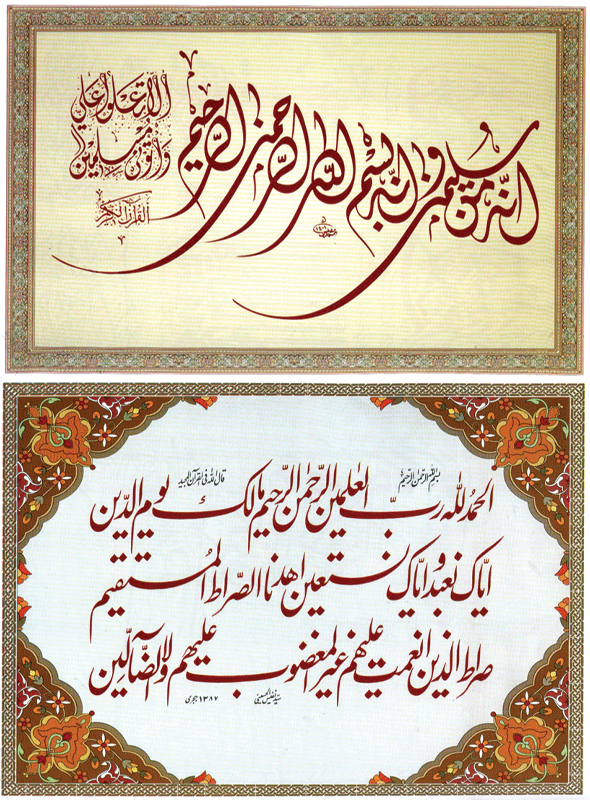 إنّه من سليمٰن وإنّه بسم الله الرّحمٰن الرّحيم
ألّا تعلوا عليّ
وأتوني مسلمين
القرآن الكريم
بسم الله الرحمن الرحيم
قال الله فى القرآن المجيد
الحمد لله ربّ العٰلمين الرّحمٰن الرّحيم مالك يوم الدّين
ايّاك نعبد و ايّاك نستعين اهدنا الصّراط المستقيم
صراط الذين انعمت عليهم غير المغضوب عليهم ولا الضّآلّين
سيد نفيس الحسيني
١٣٨٧ هجرى